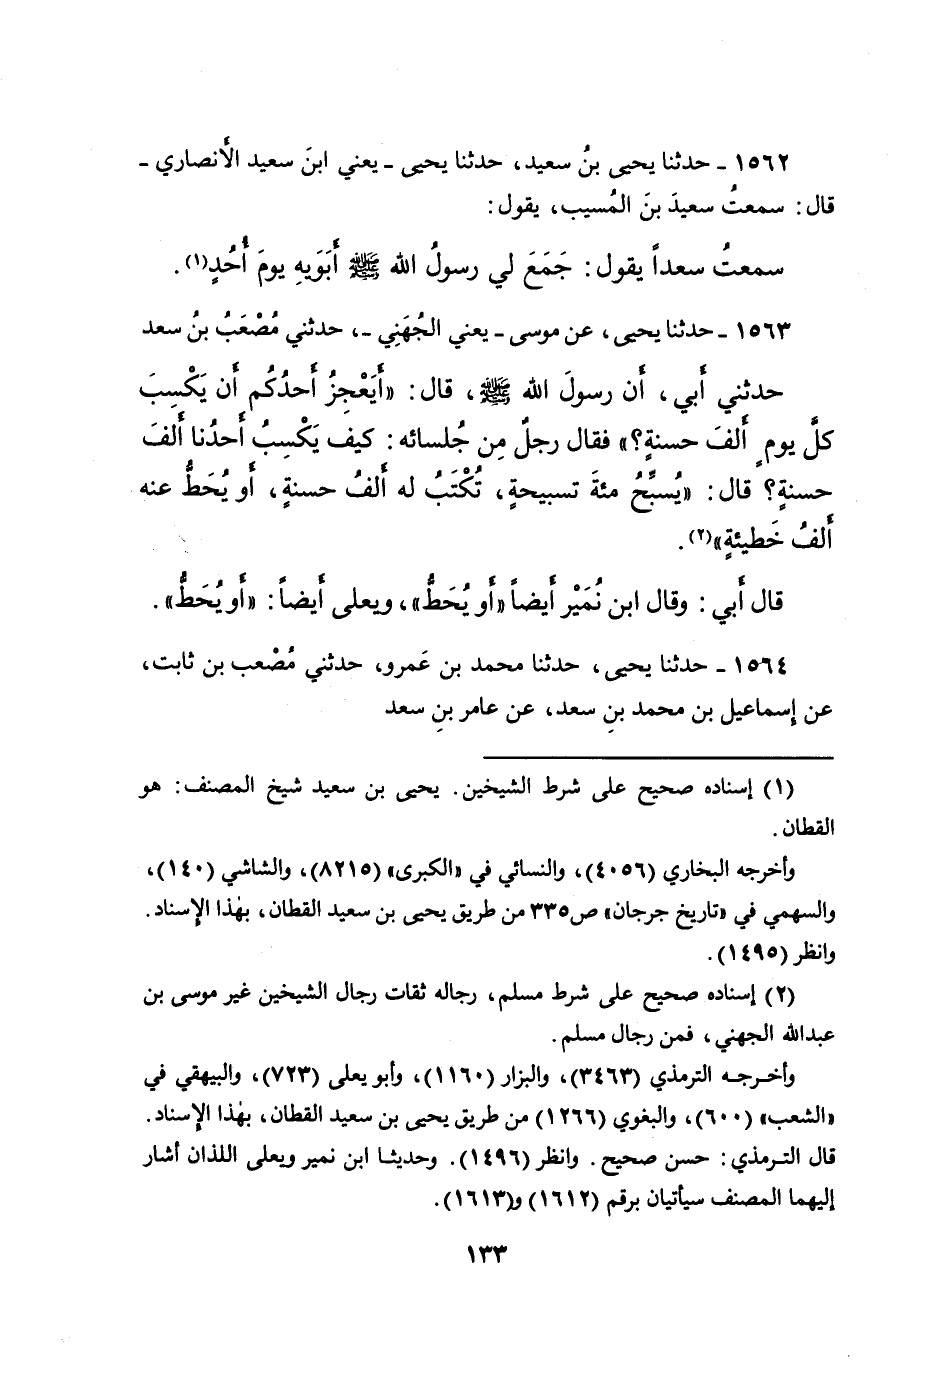 ١٥٦٢ ـ حدثنا يحيى بنُ سعيد، حدثنا يحيى ـ يعني ابنَ سعيد الأَنصاري ـ
قال: سمعتُ سعيدَ بنَ المُسيب، يقول:
سمعتُ سعداً يقول: جَمَعَ لي رسولُ الله ﷺ أَبَوَيهِ يومَ أُحُدٍ(١).
١٥٦٣ ـ حدثنا يحيى، عن موسى ـ يعني الجُهَنِي ـ، حدثني مُصْعَبُ بنُ سعد
حدثني أَبي، أَن رسولَ الله ﷺ، قال: «أَيَعْجِزُ أَحدُكُم أَن يَكْسِبَ
كلَّ يومٍ أَلفَ حسنةٍ؟» فقال رجلٌ مِن جُلسائه: كيف يَكْسِبُ أَحدُنا أَلفَ
حسنةٍ؟ قال: «يُسبِّحُ مئةَ تسبيحةٍ، تُكْتَبُ له أَلفُ حسنةٍ، أَو يُحَطُّ عنه
أَلفُ خَطيئةٍ»(٢).
قال أَبي: وقال ابن نُمَيْر أَيضاً «أَو يُحَطُّ»، ويعلى أَيضاً: «أَو يُحَطُّ».
١٥٦٤ ـ حدثنا يحيى، حدثنا محمد بن عَمرو، حدثني مُصْعب بن ثابت،
عن إسماعيل بن محمد بنِ سعد، عن عامر بنِ سعد
(١) إسناده صحيح على شرط الشيخين. يحيى بن سعيد شيخ المصنف: هو
القطان.
وأخرجه البخاري (٤٠٥٦)، والنسائي في «الكبرى» (٨٢١٥)، والشاشي (١٤٠)،
والسهمي في «تاريخ جرجان» ص٣٣٥ من طريق يحيى بن سعيد القطان، بهٰذا الإسناد.
وانظر (١٤٩٥).
(٢) إسناده صحيح على شرط مسلم، رجاله ثقات رجال الشيخين غير موسى بن
عبدالله الجهني، فمن رجال مسلم.
وأخرجه الترمذي (٣٤٦٣)، والبزار (١١٦٠)، وأبو يعلى (٧٢٣)، والبيهقي في
«الشعب» (٦٠٠)، والبغوي (١٢٦٦) من طريق يحيى بن سعيد القطان، بهٰذا الإسناد.
قال الترمذي: حسن صحيح. وانظر (١٤٩٦). وحديثا ابن نمير ويعلى اللذان أشار
إليهما المصنف سيأتيان برقم (١٦١٢) و(١٦١٣).
١٣٣